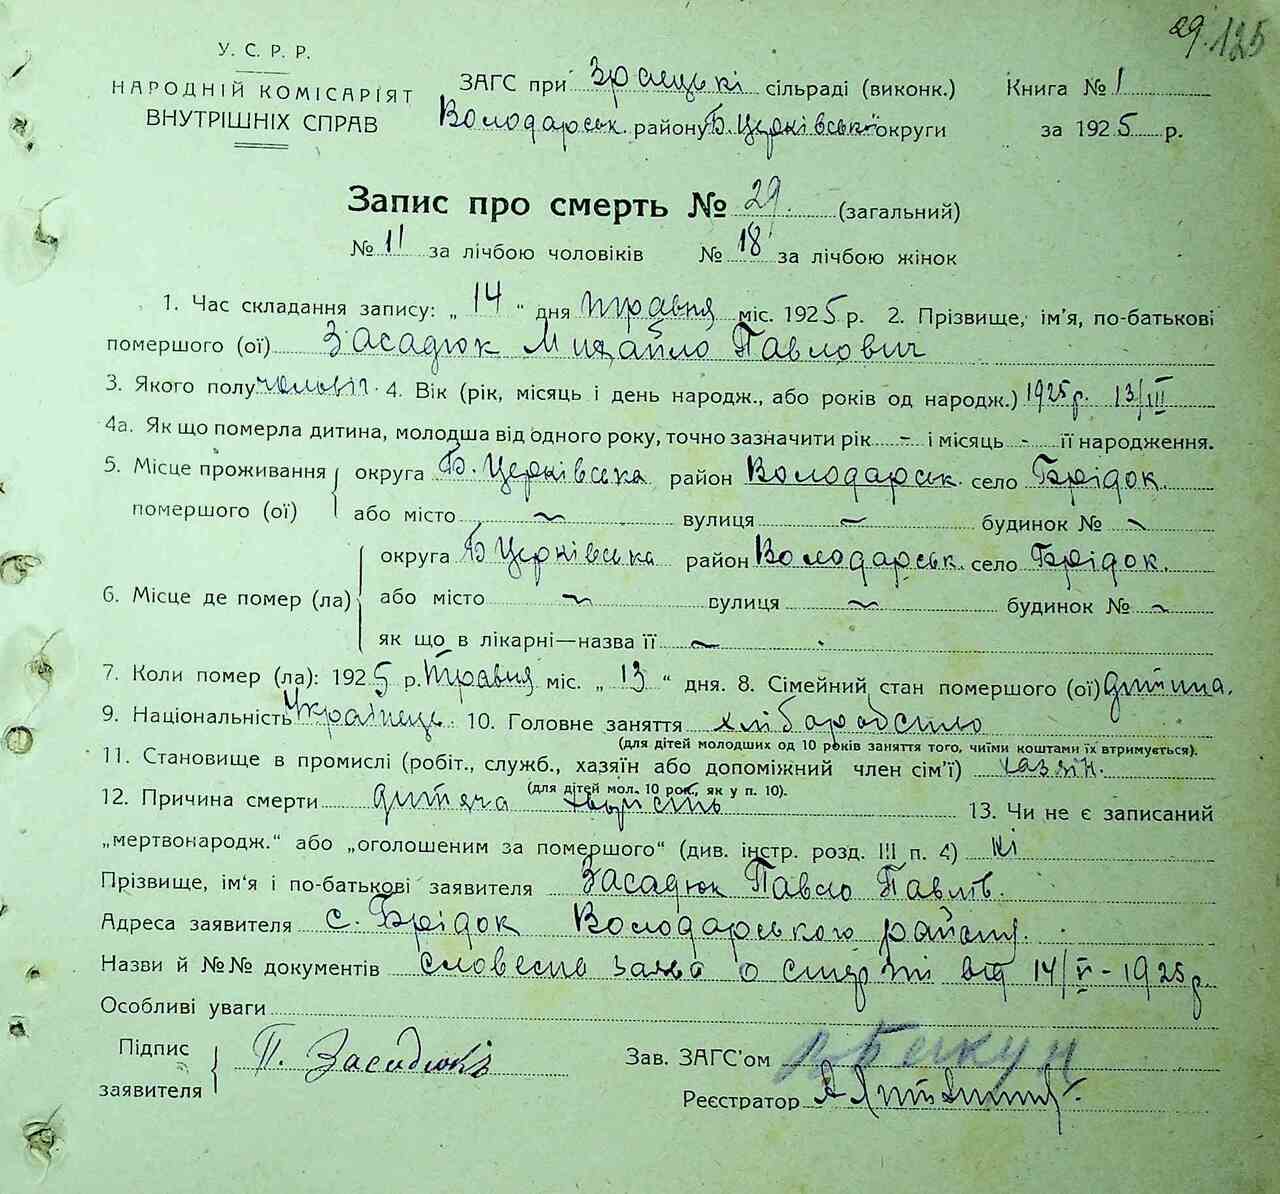 29. 125
У. С. Р. Р.
НАРОДНІЙ КОМІСАРІЯТ
ВНУТРІШНІХ СПРАВ
ЗАГС при Зрайцькі сільраді (виконк.)
Володарськ. району Б. Церківської округи
Книга № 1
за 1925 р.
Запис про смерть № 29. (загальний)
№ 11 за лічбою чоловіків № 18 за лічбою жінок
1. Час складання запису: „ 14 “ дня травня міс. 1925 р. 2. Прізвище, ім'я, по-батькові
помершого (ої) Засадюк Михайло Павлович
3. Якого полу чоловіч. 4. Вік (рік, місяць і день народж., або років од народж.) 1925 р. 13/III
4а. Як що померла дитина, молодша від одного року, точно зазначити рік - і місяць - її народження.
5. Місце проживання помершого (ої) округа Б. Церківська район Володарськ. село Брідок.
або місто ~ вулиця ~ будинок № ~
6. Місце де помер (ла) округа Б Церківська район Володарськ. село Брідок.
або місто ~ вулиця ~ будинок № ~
як що в лікарні—назва її ~
7. Коли помер (ла): 1925 р. Травня міс. „ 13 “ дня. 8. Сімейний стан помершого (ої) дитина.
9. Національність Українець. 10. Головне заняття хліборобство
(для дітей молодших од 10 років заняття того, чиїми коштами їх втримується).
11. Становище в промислі (робіт., служб., хазяїн або допоміжний член сім'ї) хазяін.
(для дітей мол. 10 рок., як у п. 10).
12. Причина смерти дитяча 13. Чи не є записаний
„мертвонародж.“ або „оголошеним за помершого“ (див. інстр. розд. III п. 4) ні
Прізвище, ім'я і по-батькові заявителя Засадюк Павло Павлів.
Адреса заявителя с. Брідок Володарського району.
Назви й №№ документів словесна заява о смерті від 14/V-1925 р.
Особливі уваги
Підпис заявителя П. Засидюкъ
Зав. ЗАГС'ом Бакун
Реєстратор